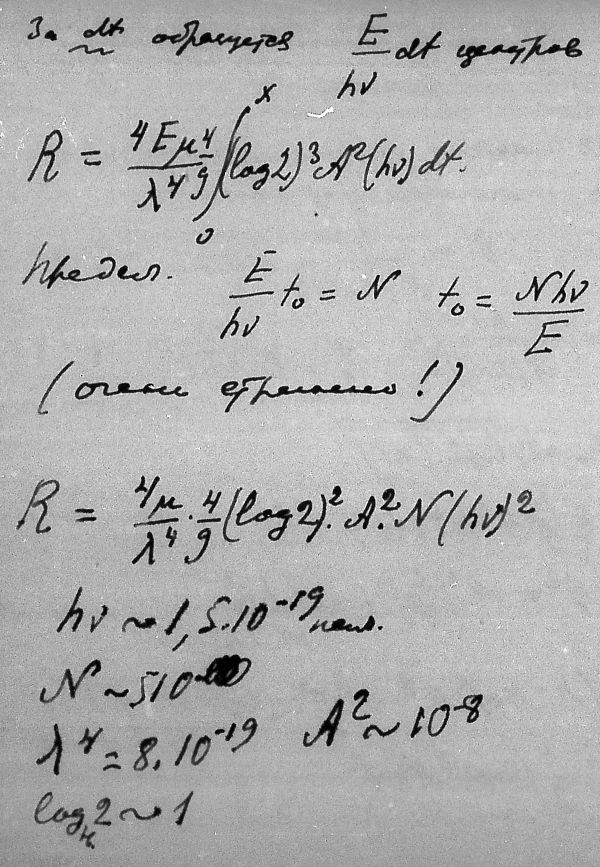 За dt образуется E/hν dt центров
R = 4Eμ/λ⁴ 4/9 ∫₀ˣ (log2)³ A² (hν) dt.
Предел. E/hν t₀ = N t₀ = Nhν/E
(очень странно!)
R = 4μ/λ⁴ · 4/9 (log2)². A². N (hν)²
hν ~ 1,5.10⁻¹⁹
N ~ 510
λ⁴ = 8.10⁻¹⁹ A² ~ 10⁻⁸
log 2 ~ 1